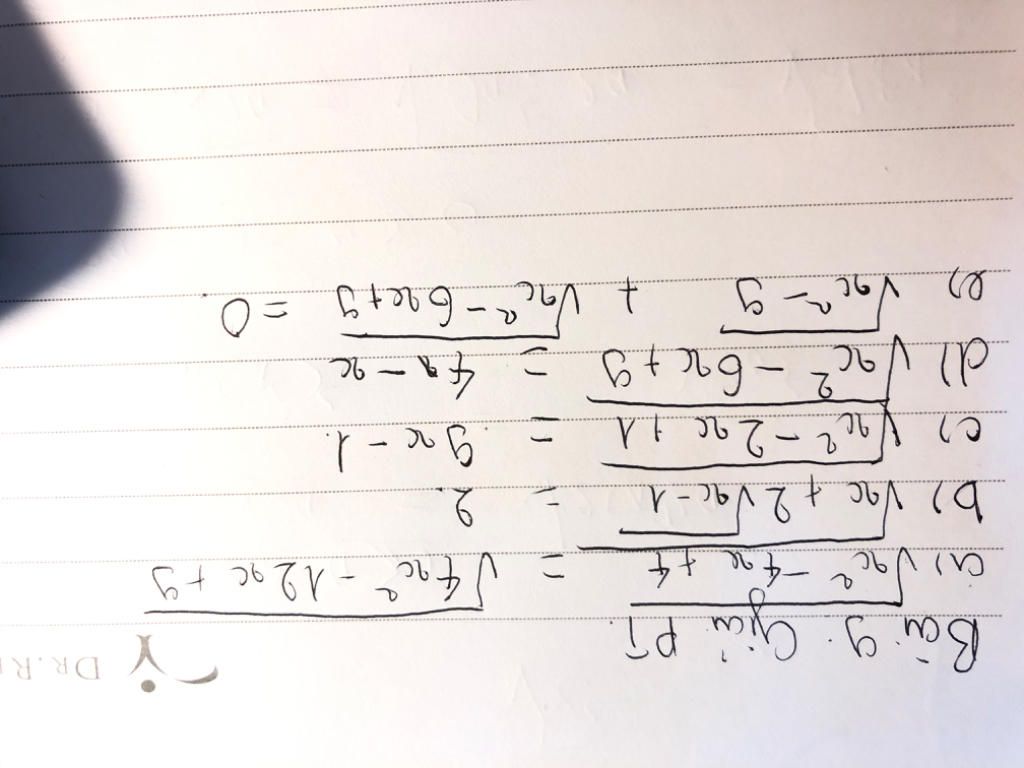 DR.R
Bài 9: Giải PT.
a) √(x² - 4x + 4) = √(4x² - 12x + 9)
b) √(x + 2√(x - 1)) = 2.
c) √(x² - 2x + 1) = 9x - 1.
d) √(x² - 6x + 9) = 4 - x
e) √(x² - 9) + √(x² - 6x + 9) = 0.